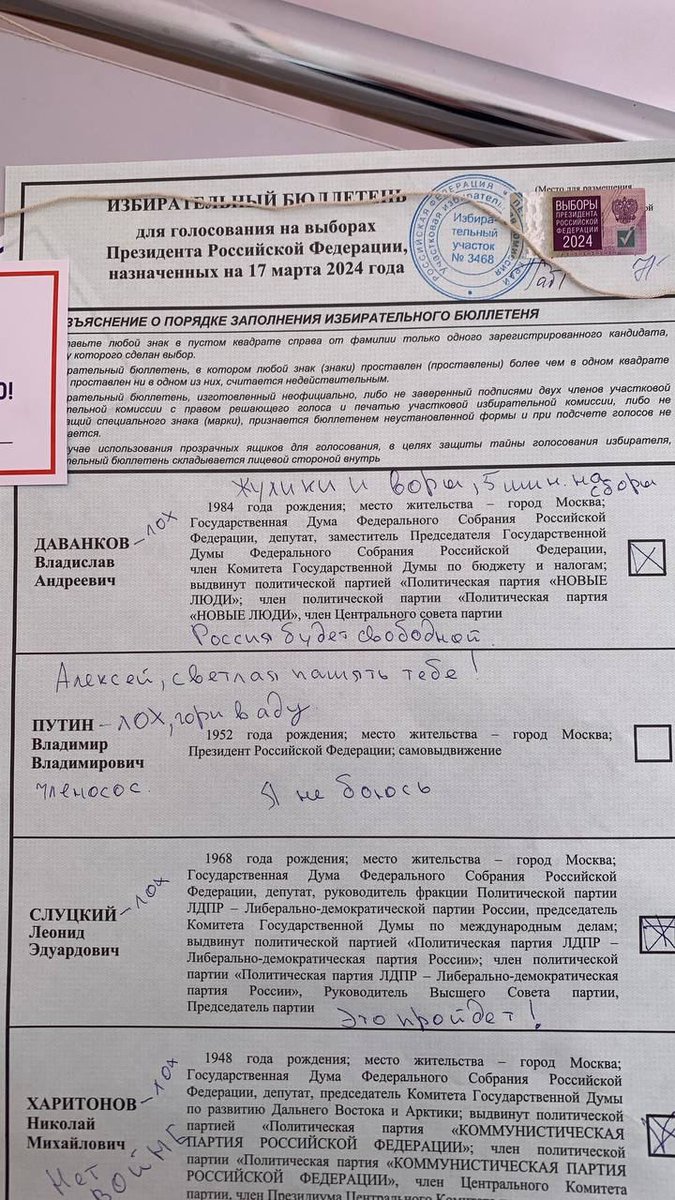 ИЗБИРАТЕЛЬНЫЙ БЮЛЛЕТЕНЬ
для голосования на выборах
Президента Российской Федерации,
назначенных на 17 марта 2024 года
РОССИЙСКАЯ ФЕДЕРАЦИЯ
Избира-
тельный
участок
№ 3468
(Место для размещения
ВЫБОРЫ
ПРЕЗИДЕНТА
РОССИЙСКОЙ
ФЕДЕРАЦИИ
2024
О!
ЗЪЯСНЕНИЕ О ПОРЯДКЕ ЗАПОЛНЕНИЯ ИЗБИРАТЕЛЬНОГО БЮЛЛЕТЕНЯ
тавьте любой знак в пустом квадрате справа от фамилии только одного зарегистрированного кандидата,
у которого сделан выбор.
рательный бюллетень, в котором любой знак (знаки) проставлен (проставлены) более чем в одном квадрате
проставлен ни в одном из них, считается недействительным.
рательный бюллетень, изготовленный неофициально, либо не заверенный подписями двух членов участковой
тельной комиссии с правом решающего голоса и печатью участковой избирательной комиссии, либо не
ащий специального знака (марки), признается бюллетенем неустановленной формы и при подсчете голосов не
ается.
учае использования прозрачных ящиков для голосования, в целях защиты тайны голосования избирателя,
тельный бюллетень складывается лицевой стороной внутрь
Жулики и воры, 5 мин. на сборы
ДАВАНКОВ – лох
Владислав
Андреевич
1984 года рождения; место жительства – город Москва;
Государственная Дума Федерального Собрания Российской
Федерации, депутат, заместитель Председателя Государственной
Думы Федерального Собрания Российской Федерации,
член Комитета Государственной Думы по бюджету и налогам;
выдвинут политической партией «Политическая партия «НОВЫЕ
ЛЮДИ»; член политической партии «Политическая партия
«НОВЫЕ ЛЮДИ», член Центрального совета партии
Россия будет свободной.
Алексей, светлая память тебе!
ПУТИН – лох, гори в аду
Владимир
Владимирович
членосос.
1952 года рождения; место жительства – город Москва;
Президент Российской Федерации; самовыдвижение
Я не боюсь
СЛУЦКИЙ – лох
Леонид
Эдуардович
1968 года рождения; место жительства – город Москва;
Государственная Дума Федерального Собрания Российской
Федерации, депутат, руководитель фракции Политической партии
ЛДПР – Либерально-демократической партии России, председатель
Комитета Государственной Думы по международным делам;
выдвинут политической партией «Политическая партия ЛДПР –
Либерально-демократическая партия России»; член политической
партии «Политическая партия ЛДПР – Либерально-демократическая
партия России», Руководитель Высшего Совета партии,
Председатель партии
Это пройдет!
ХАРИТОНОВ – лох
Николай
Михайлович
Нет войне
1948 года рождения; место жительства – город Москва;
Государственная Дума Федерального Собрания Российской
Федерации, депутат, председатель Комитета Государственной Думы
по развитию Дальнего Востока и Арктики; выдвинут политической
партией «Политическая партия «КОММУНИСТИЧЕСКАЯ
ПАРТИЯ РОССИЙСКОЙ ФЕДЕРАЦИИ»; член политической
партии «Политическая партия «КОММУНИСТИЧЕСКАЯ ПАРТИЯ
РОССИЙСКОЙ ФЕДЕРАЦИИ», член Центрального Комитета
партии, член Президиума Центрального